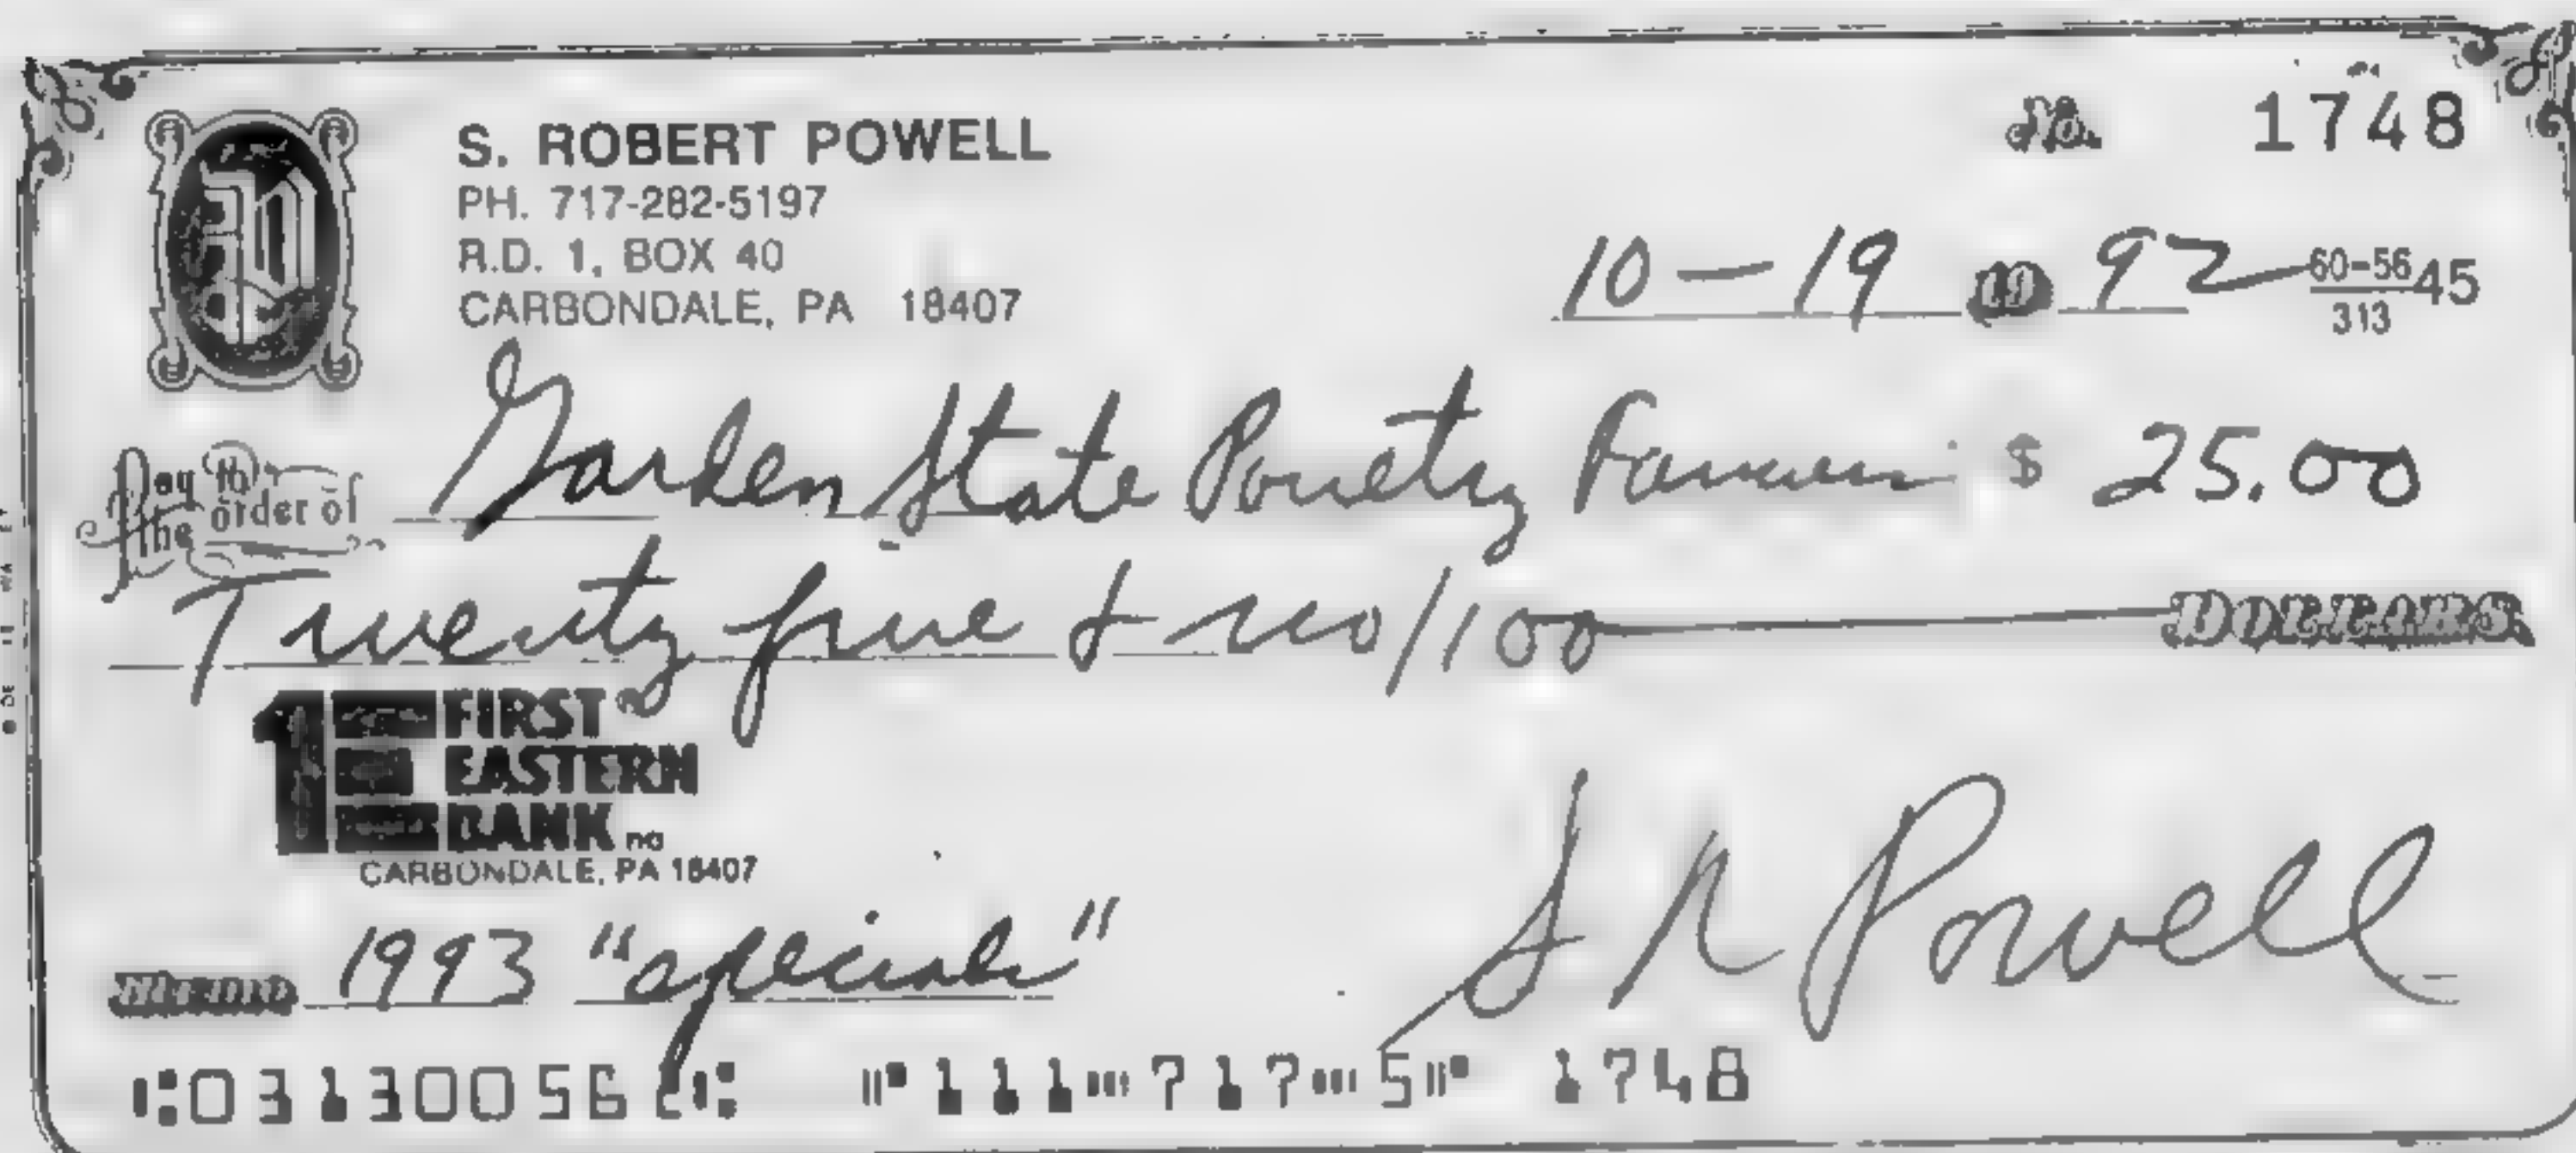 S. ROBERT POWELL
No. 1748
PH. 717-282-5197
R.D. 1, BOX 40
CARBONDALE, PA 18407
10-19 19 92
60-5645
313
Pay to the order of Garden State Poultry Fanciers $ 25.00
Twenty five & no/100 DOLLARS
1E FIRST
EASTERN
BANK na
CARBONDALE, PA 18407
Memo 1993 "specials"
S R Powell
⑆0313005 ⑆ ⑈111⑉717⑉5⑈ 1748